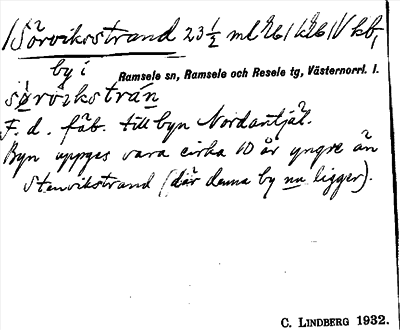 Sörviksstrand 23½ ml
by i Ramsele sn, Ramsele och Resele tg, Västernorrl. l.
sørvikstrán
F. d. fäb. till byn Nordantjäl.
Byn uppges vara cirka 10 år yngre än
Stenvikstrand (där denna by nu ligger).
C. LINDBERG 1932.